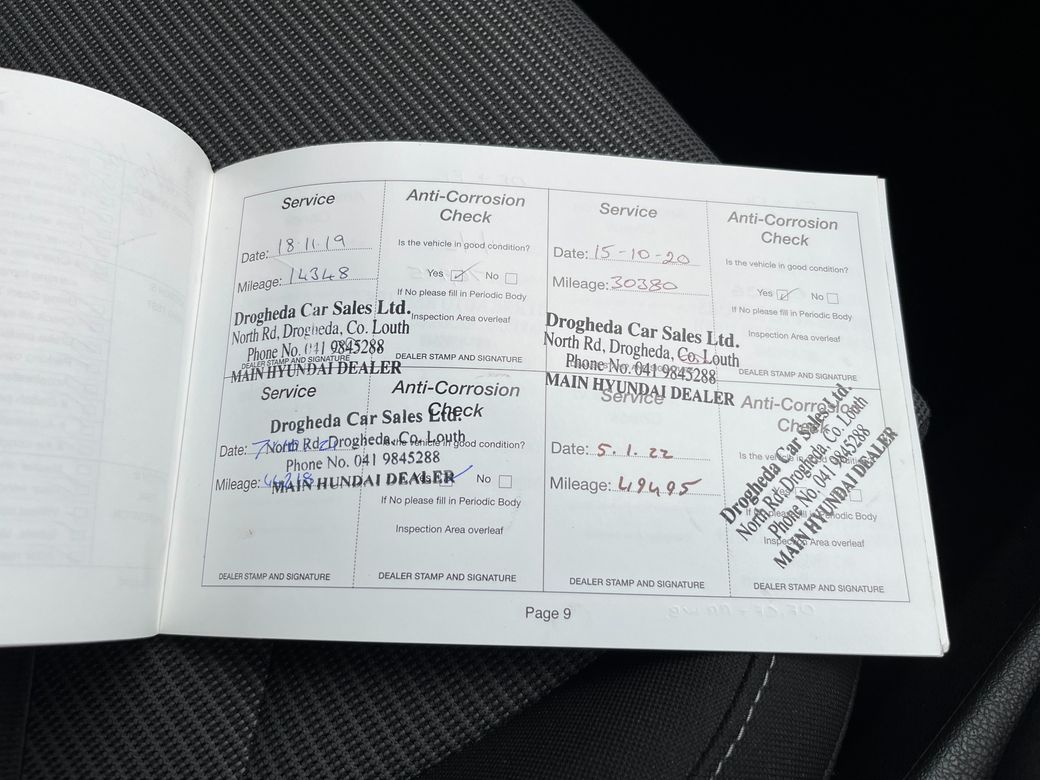 Service
Anti-Corrosion
Check
Date: 18·11·19
Is the vehicle in good condition?
Mileage: 14348
Yes No
If No please fill in Periodic Body
Inspection Area overleaf
Drogheda Car Sales Ltd.
North Rd, Drogheda, Co. Louth
Phone No. 041 9845288
MAIN HYUNDAI DEALER
DEALER STAMP AND SIGNATURE
DEALER STAMP AND SIGNATURE
Service
Anti-Corrosion
Check
Date: 15-10-20
Is the vehicle in good condition?
Mileage: 30380
Yes No
If No please fill in Periodic Body
Inspection Area overleaf
Drogheda Car Sales Ltd.
North Rd, Drogheda, Co. Louth
Phone No. 041 9845288
MAIN HYUNDAI DEALER
DEALER STAMP AND SIGNATURE
Service
Anti-Corrosion
Check
Drogheda Car Sales Ltd.
North Rd, Drogheda, Co. Louth
Phone No. 041 9845288
MAIN HYUNDAI DEALER
Date:
the vehicle in good condition?
Mileage:
Yes No
If No please fill in Periodic Body
Inspection Area overleaf
DEALER STAMP AND SIGNATURE
DEALER STAMP AND SIGNATURE
Service
Anti-Corrosion
Check
Date: 5.1.22
Is the vehicle in good condition?
Mileage: 49495
Drogheda Car Sales Ltd.
North Rd, Drogheda, Co. Louth
Phone No. 041 9845288
MAIN HYUNDAI DEALER
If No please fill in Periodic Body
Inspection Area overleaf
DEALER STAMP AND SIGNATURE
DEALER STAMP AND SIGNATURE
Page 9